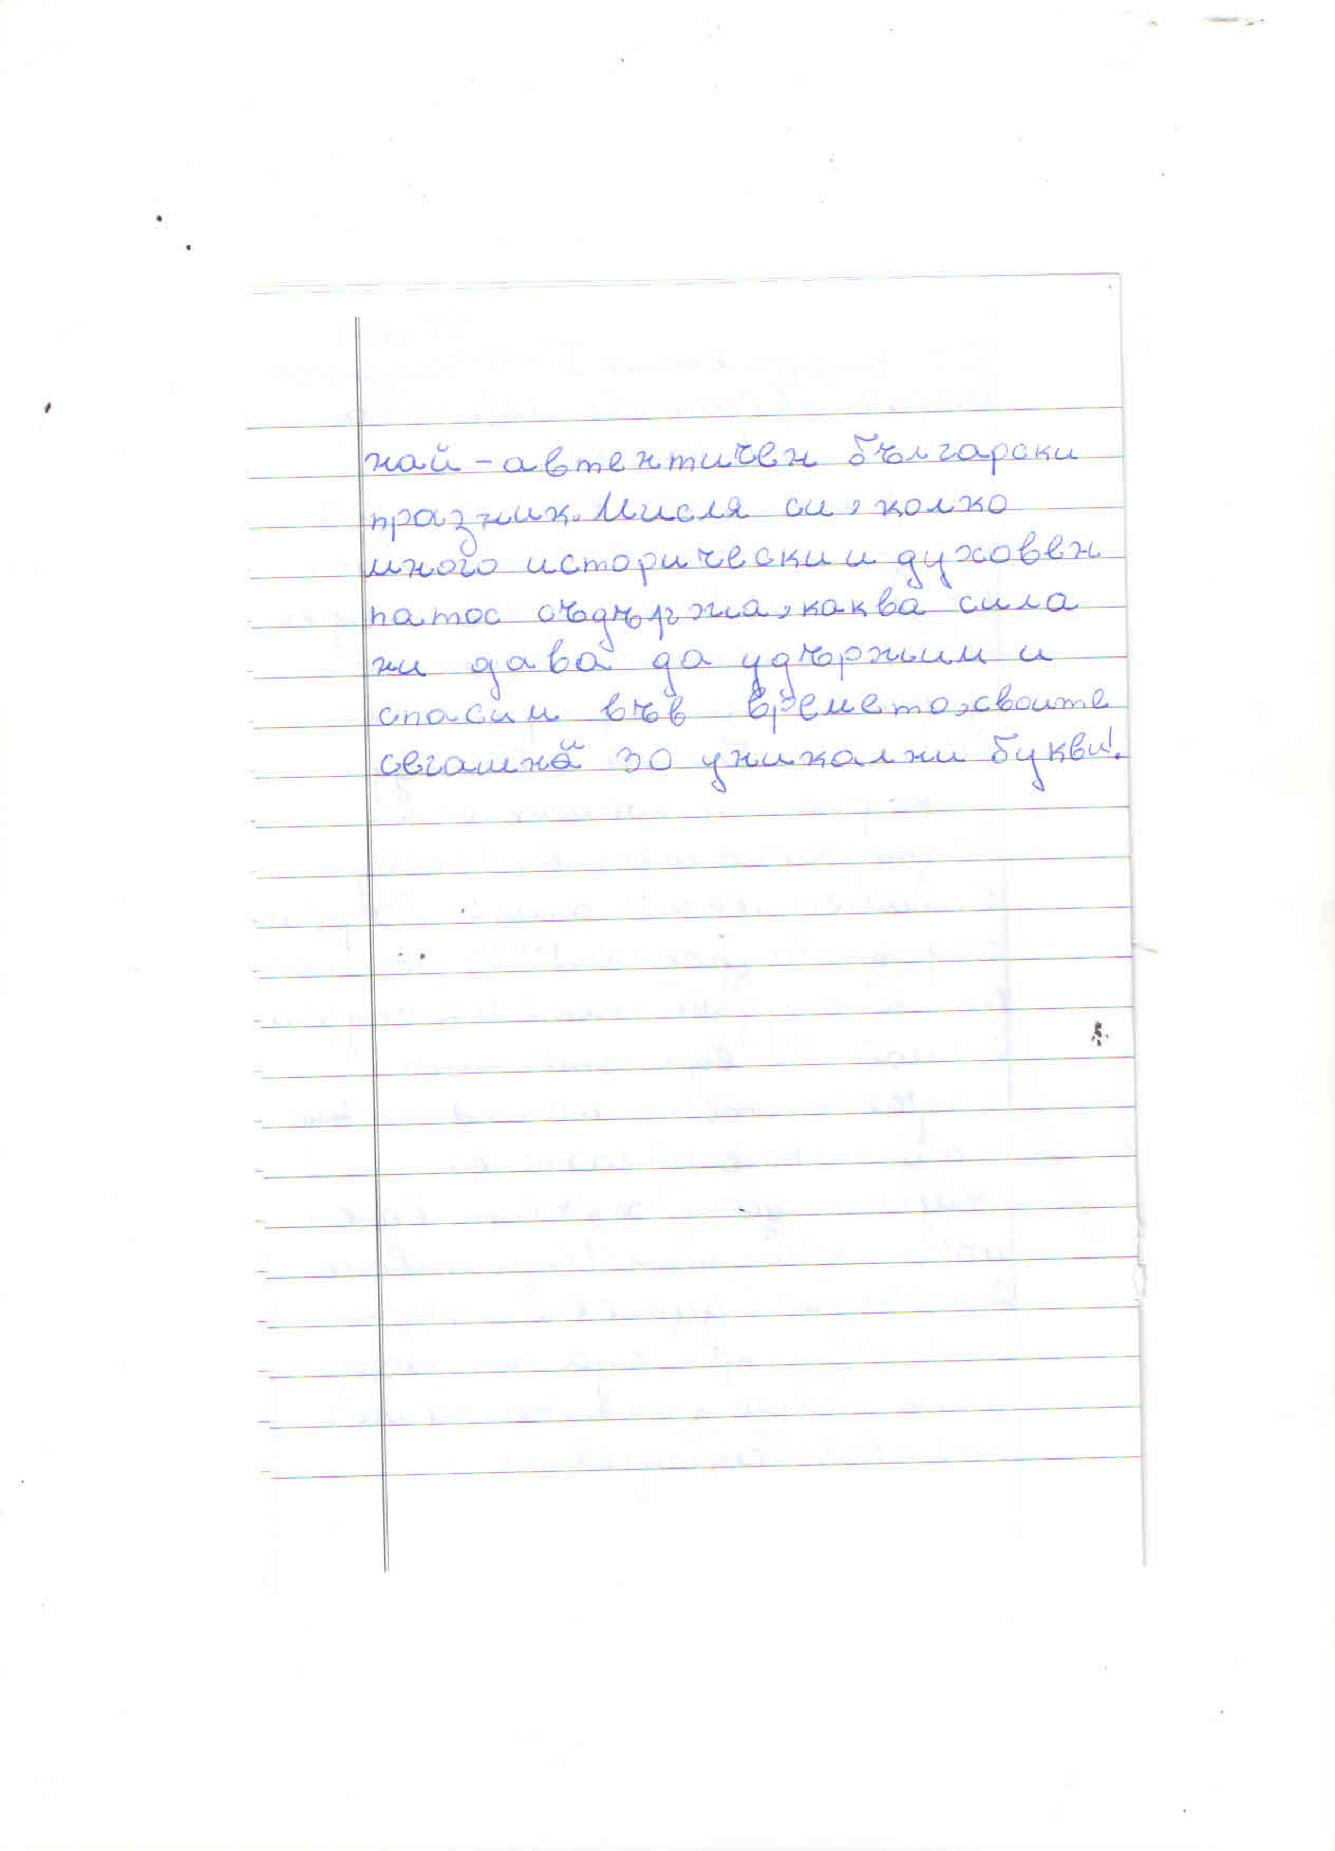 най-автентичен български
празник. Мисля си, колко
много исторически и духовен
патос съдържа, каква сила
ни дава да удържим и
спасим във времето, своите
сегашни 30 уникални букви!